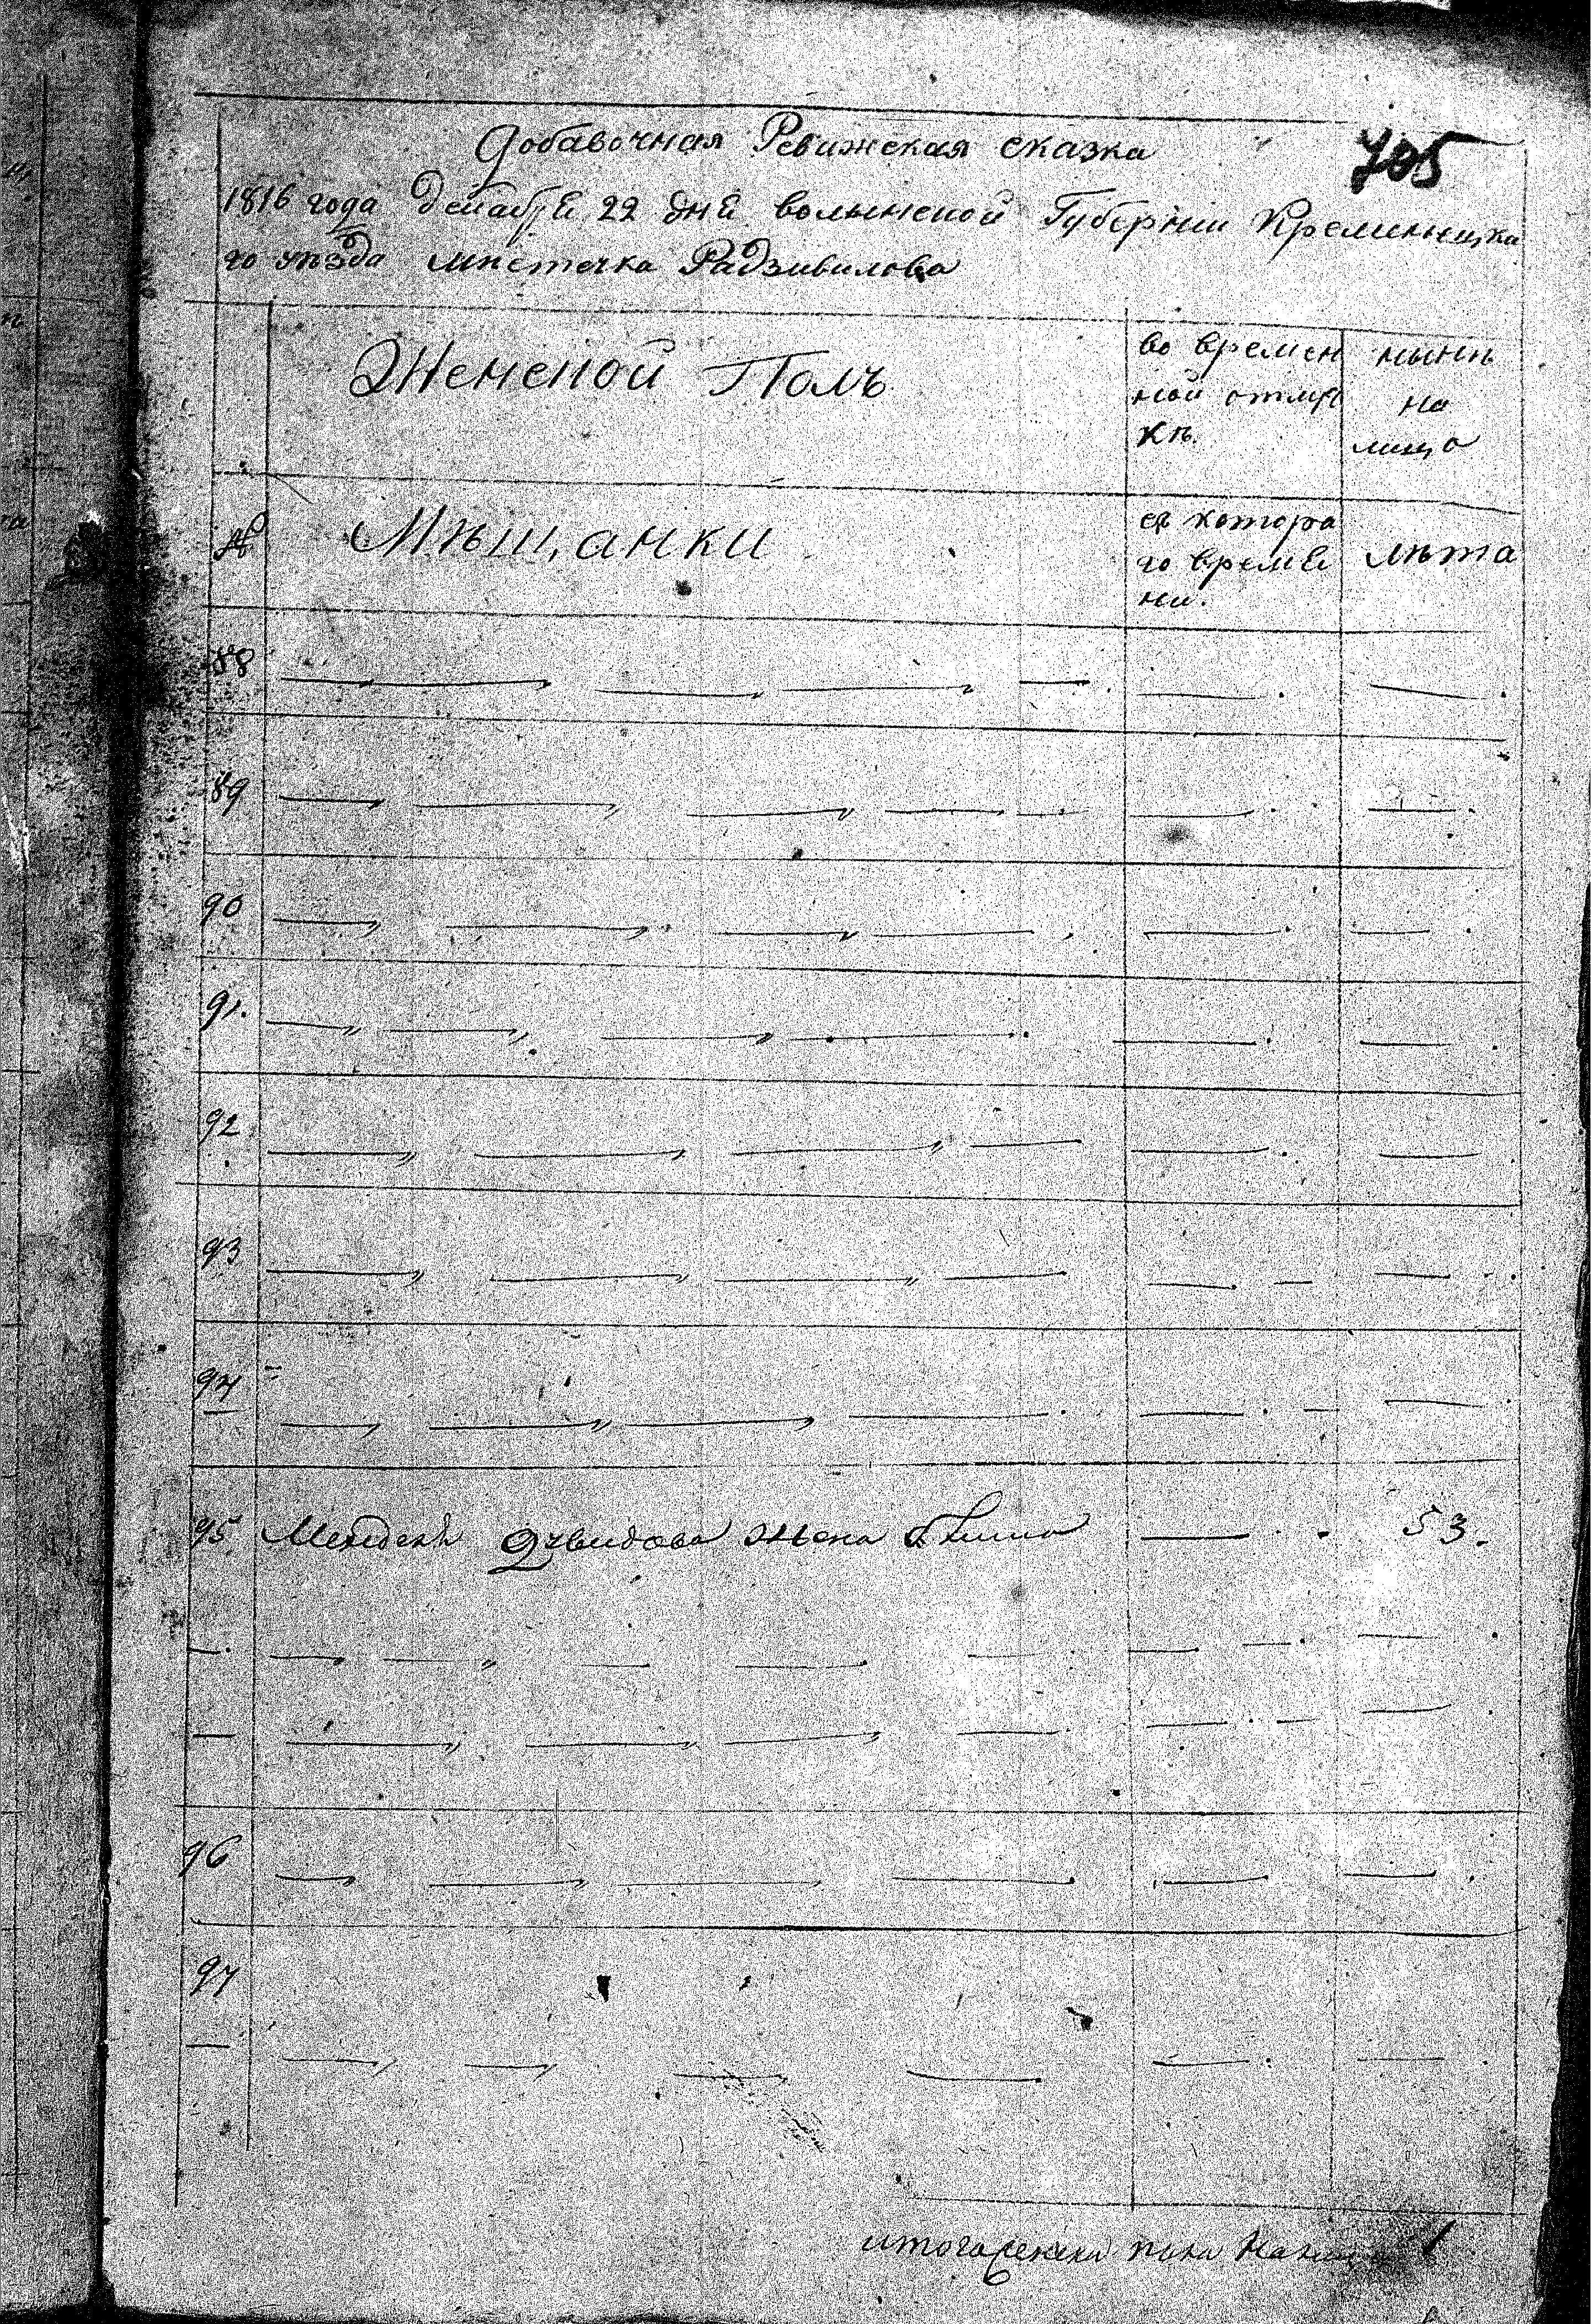 Добавочная Ревижская сказка
705
1816 года декабря 22 дня волынской Губернии Кременецка
го уѣзда мѣстечка Радзивилова
Женской Полъ
во времен
ной отлуч
кѣ.
нынѣ
на
лицо
№
Мѣщанки
съ котора
го време
ни.
лѣта
88
89
90
91.
92
93
94
95 жена 53.
96
97
итого женска пола На лицо 1